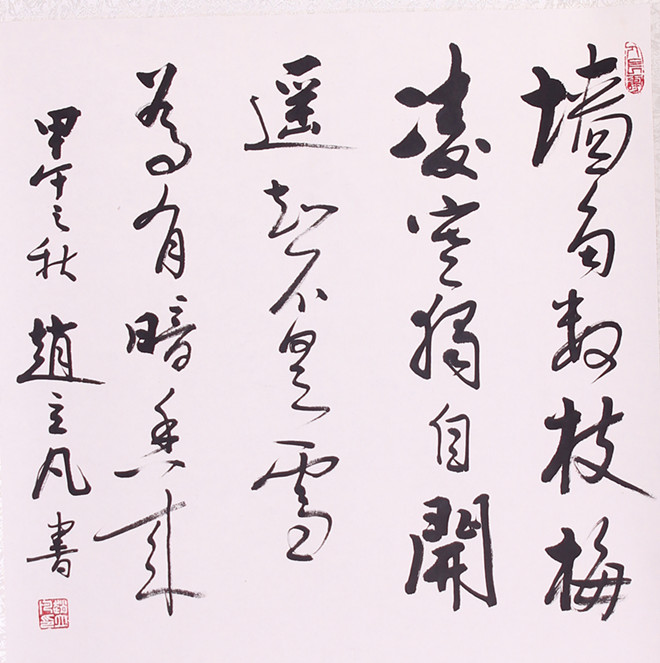 墙角数枝梅
凌寒獨自開
遥知不是雪
為有暗香来
甲午之秋 趙立凡書